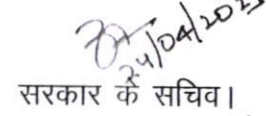 24/04/202
सरकार के सचिव।